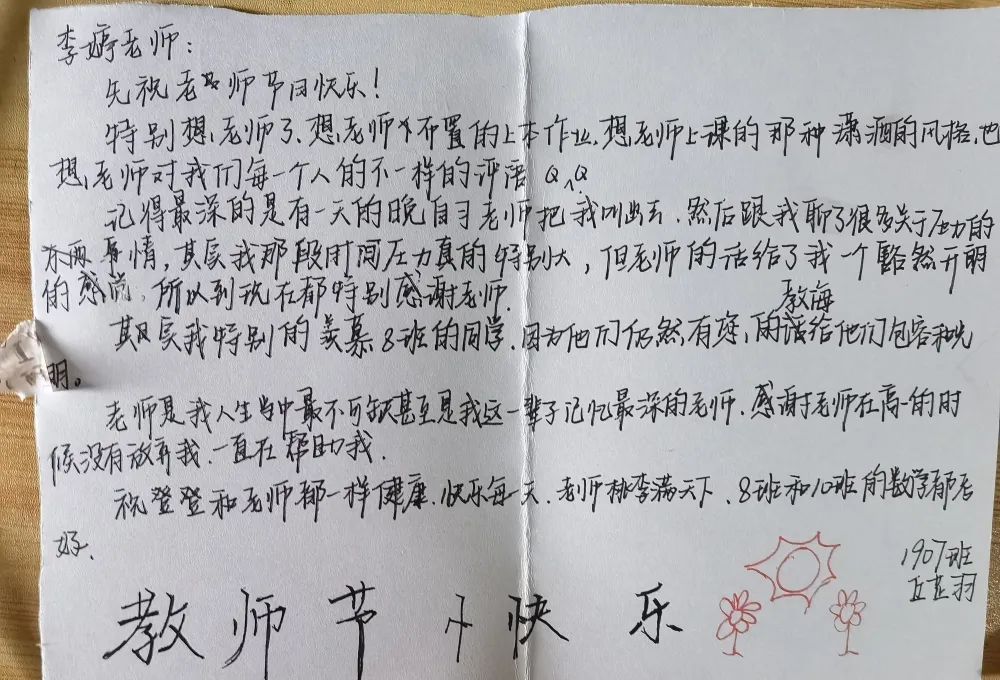 李婷老师：
先祝老师节日快乐！
特别想老师了、想老师布置的上本作业、想老师上课的那种潇洒的风格、也
想老师对我们每一个人的不一样的评语 Q^Q
记得最深的是有一天的晚自习老师把我叫出去、然后跟我聊了很多关于压力的
事情，其实我那段时间压力真的特别大，但老师的话给了我一个豁然开明
的感觉。所以到现在都特别感谢老师.
教海
其实我特别的羡慕8班的同学、因为他们仍然有您，的话给他们包容和光
明。
老师是我人生当中最不可缺甚至是我这一辈子记忆最深的老师、感谢老师在高一的时
候没有放弃我、一直在帮助我.
祝登登和老师都一样健康、快乐每一天、老师桃李满天下、8班和10班的数学都考
好、
1907班
教师节快乐